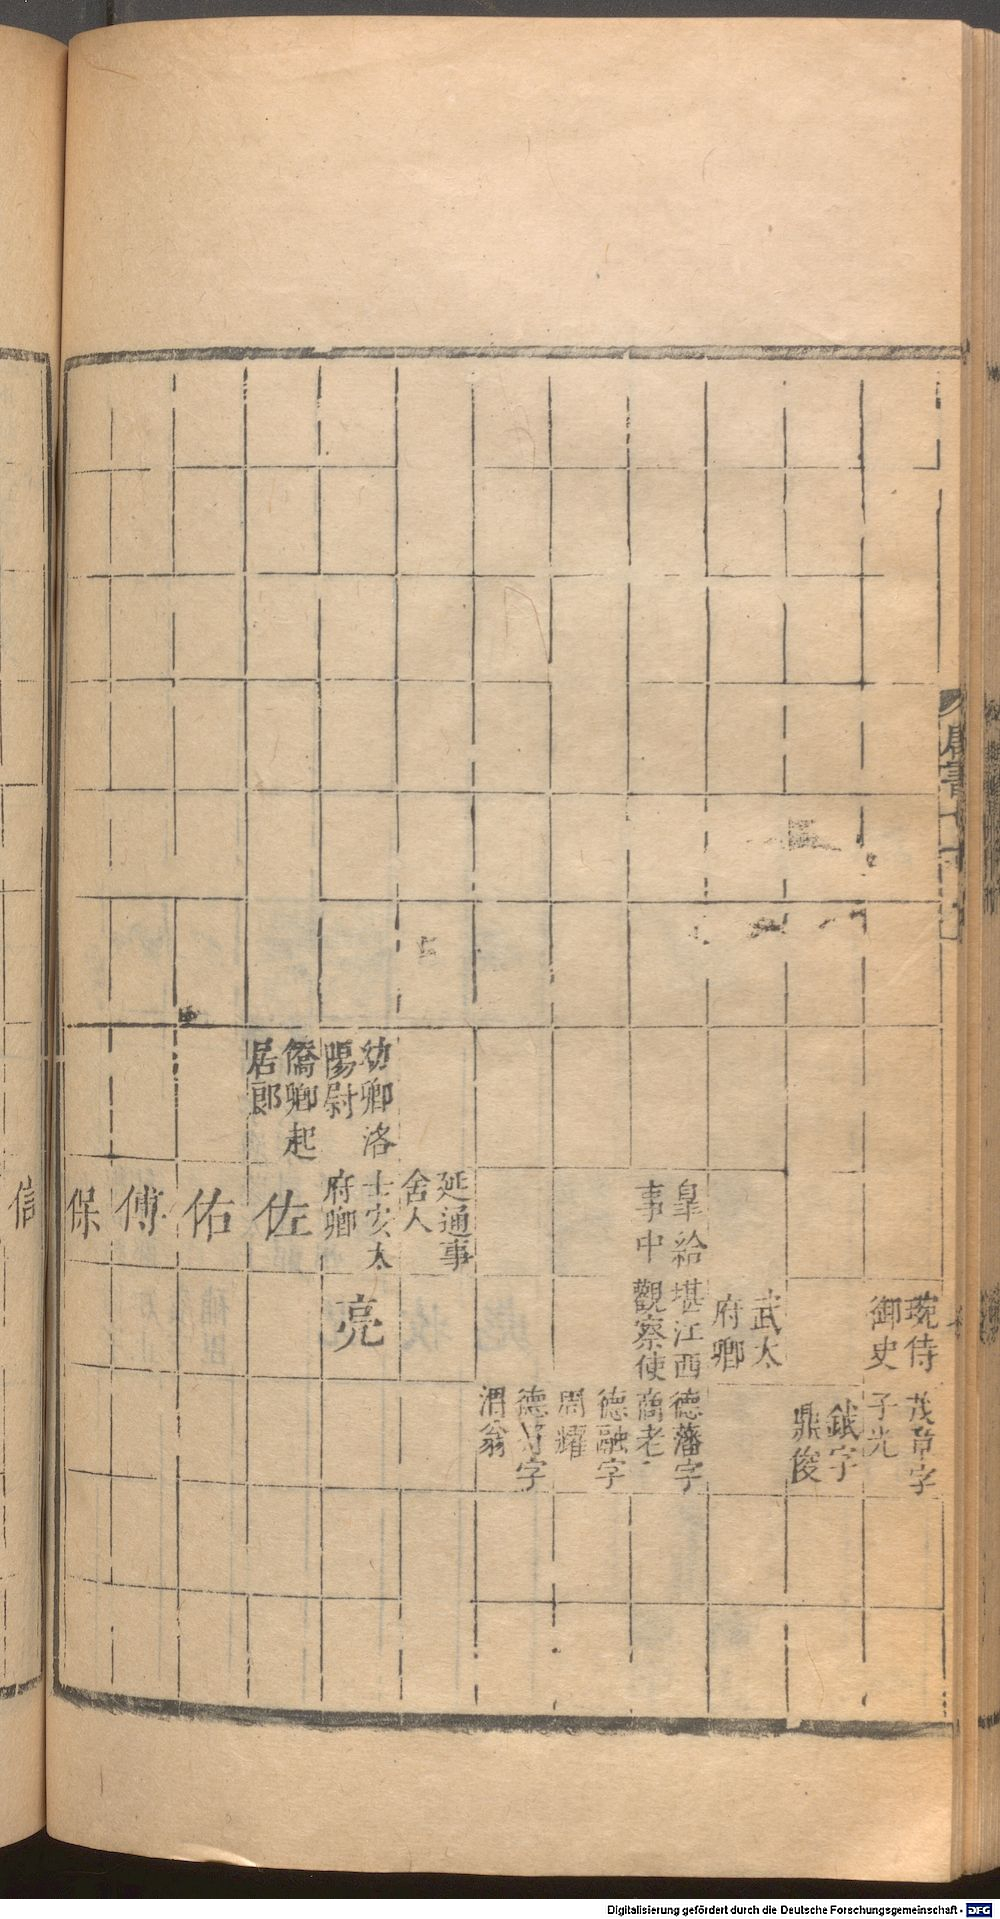 唐書七十
琬侍
御史
茂章字
子光
鉞字
鼎俊
武太
府卿
皐給
事中
堪江西
觀察使
德藩字
商老
德融字
周耀
德符字
渭翁
延通事
舍人
幼卿洛
陽尉
士安太
府卿
亮
僑卿起
居郎
佐
佑
傅
保
信
Digitalisierung gefördert durch die Deutsche Forschungsgemeinschaft - DFG